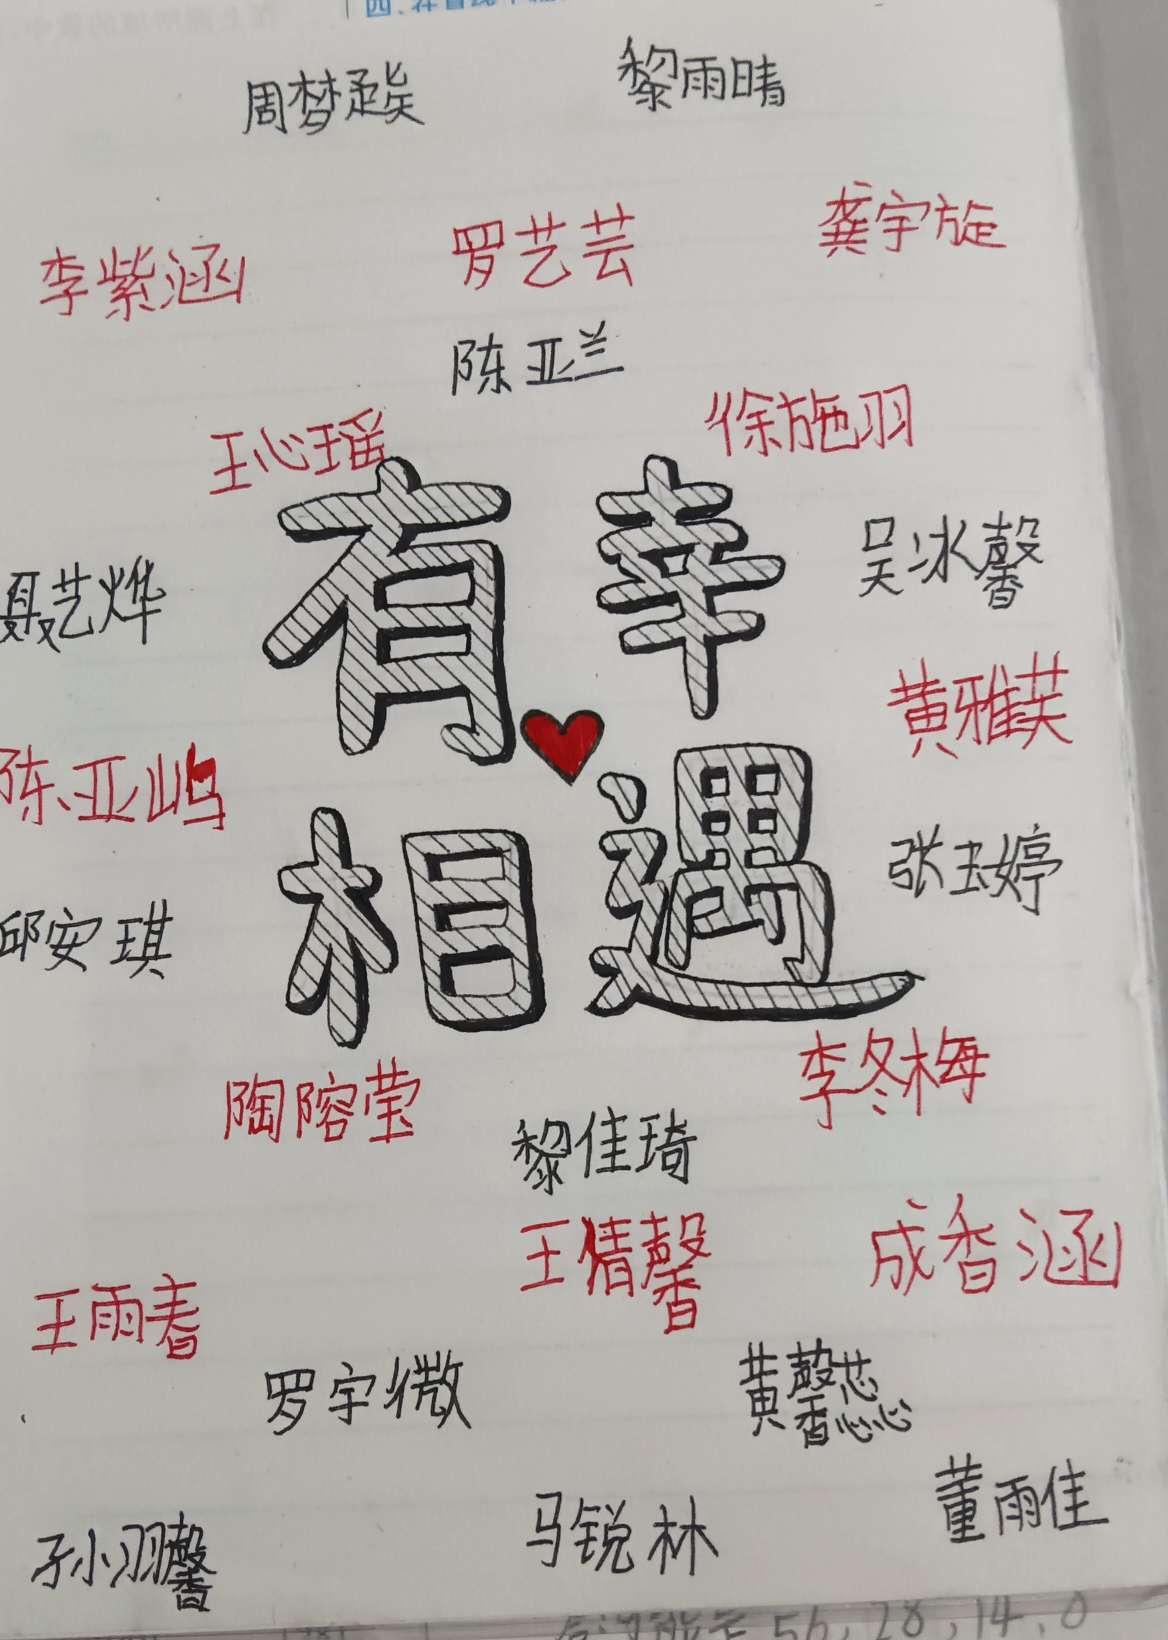 周梦彧 黎雨晴
李紫涵 罗艺芸 龚宇旋
陈亚兰
王心瑶 徐施羽
有幸
聂艺烨 吴冰馨
黄雅芙
陈亚屿
相遇
张玉婷
邱安琪
陶隌莹 李冬梅
黎佳琦
王倩馨 成香涵
王雨春
罗宇微 黄馨蕊
孙小羽馨 马锐林 董雨佳
56,28,14,0